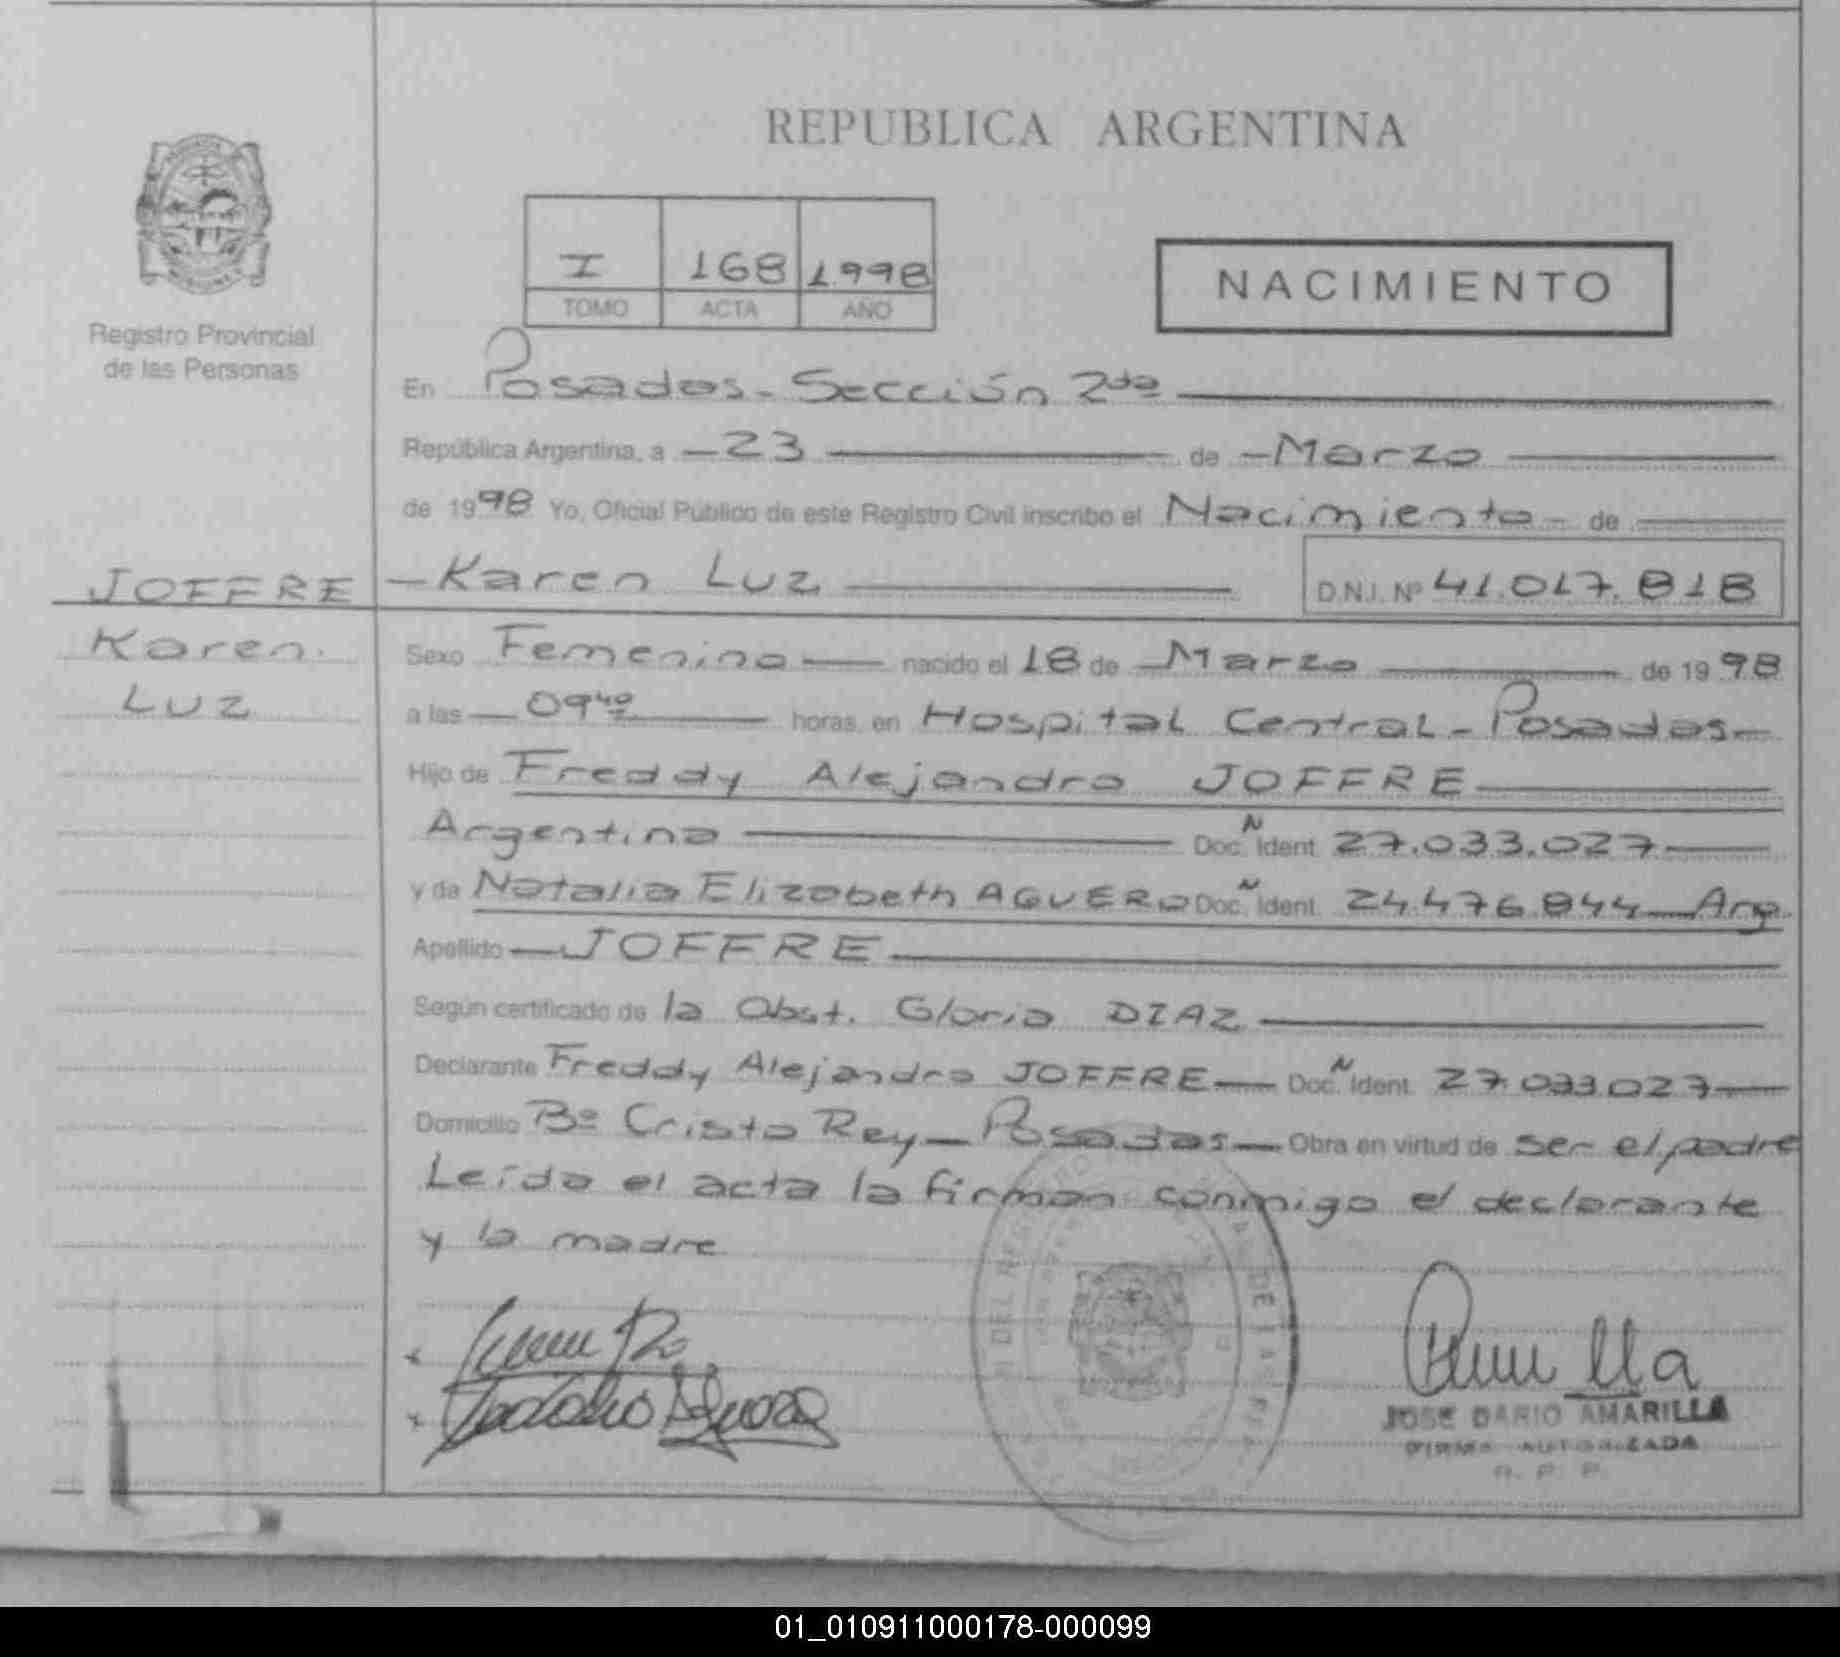 REPUBLICA ARGENTINA
Registro Provincial
de las Personas
I 168 1998
TOMO ACTA AÑO
NACIMIENTO
En Posadas - Sección 2da
República Argentina, a - 23 de - Marzo
de 1998 Yo, Oficial Público de este Registro Civil inscribo el Nacimiento - de
JOFFRE - Karen Luz D.N.I. Nº 41.017.818
Karen.
Luz
Sexo Femenino nacido el 18 de Marzo de 1998
a las 09 40 horas, en Hospital Central - Posadas -
Hijo de Freddy Alejandro JOFFRE
Argentina Doc. Ñ Ident. 27.033.027
y de Natalia Elizabeth AGUERO Doc. Ñ Ident. 24.476.844 Arg.
Apellido JOFFRE
Según certificado de la Obst. Gloria DIAZ
Declarante Freddy Alejandro JOFFRE Doc. Ñ Ident. 27.033.027
Domicilio Bº Cristo Rey - Posadas - Obra en virtud de ser el padre
Leída el acta la firman conmigo el declarante
y la madre
JOSE DARIO AMARILLA
FIRMA AUTORIZADA
R. P. P.
01_010911000178-000099